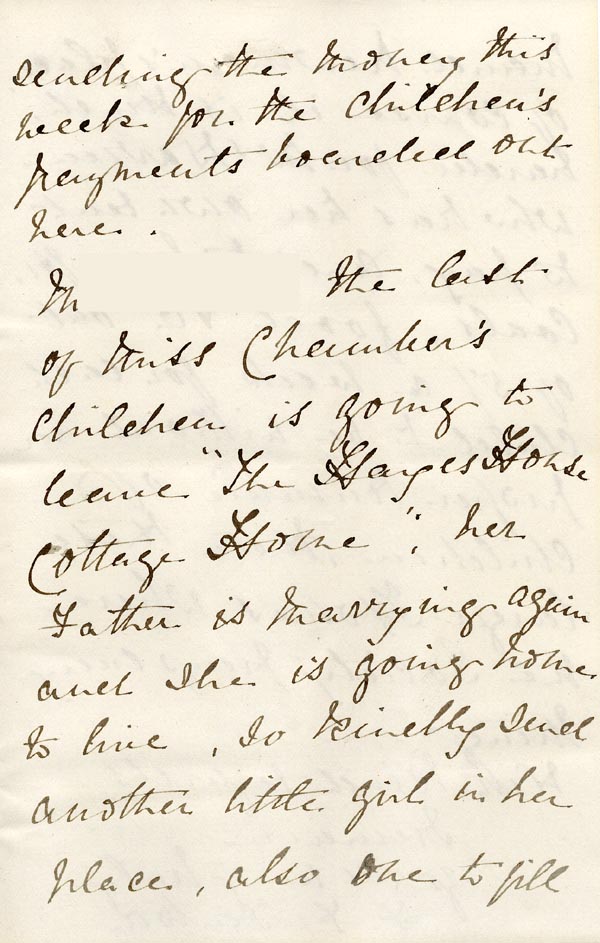 sending the money this
week for the children's
payments boarded out
here.
M the last
of Miss Chamber's
children is going to
leave "The Hayes House
Cottage Home", her
Father is marrying again
and she is going home
to live, so kindly send
another little girl in her
place, also one to fill